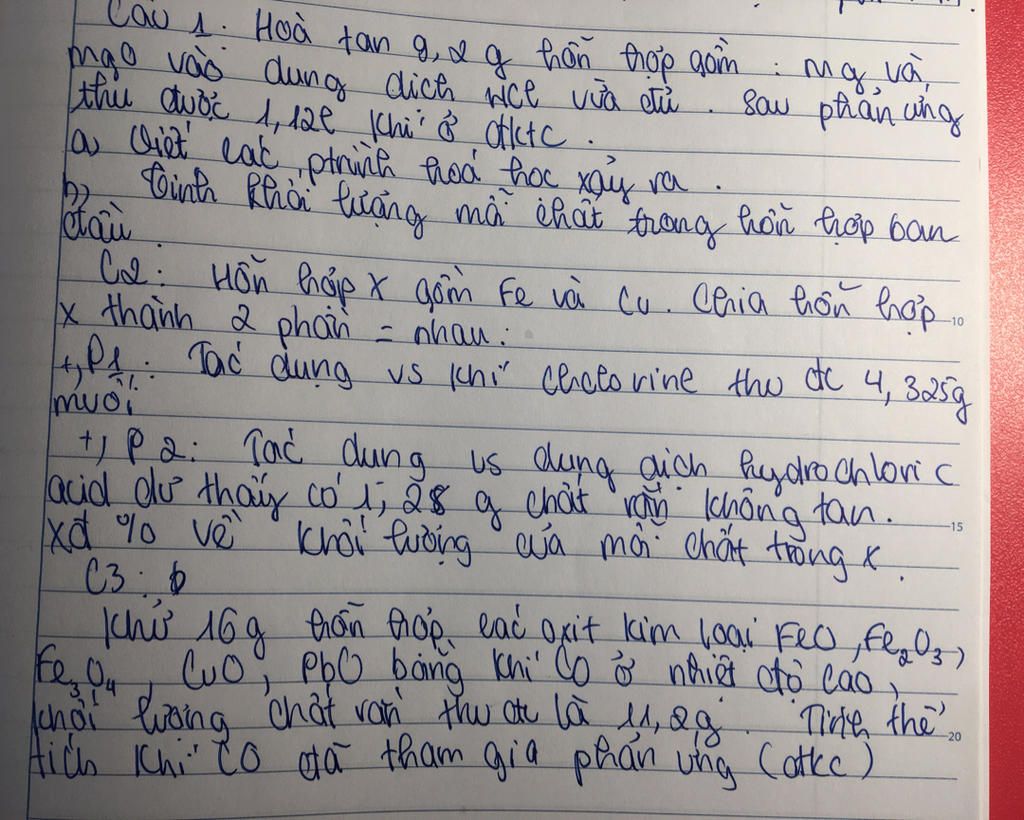 Câu 1: Hoà tan 9,2 g hỗn hợp gồm: Mg và
MgO vào dung dịch HCl vừa đủ. Sau phản ứng
thu được 1,12l khí ở đktc.
a, Viết các ptrình hoá học xảy ra.
b, Tính khối lượng mỗi chất trong hỗn hợp ban
đầu.
C2: Hỗn hợp X gồm Fe và Cu. Chia hỗn hợp 10
X thành 2 phần = nhau:
+, P1: Tác dụng vs khí chclorine thu đc 4,325g
muối
+, P2: Tác dụng vs dung dịch hydrochloric
acid dư thấy có 1,28 g chất rắn không tan. 15
Xđ % về khối lượng của mỗi chất trong X.
C3:
Khử 16g hỗn hợp các oxit kim loại FeO, Fe2O3,
Fe3O4, CuO, PbO bằng khí CO ở nhiệt độ cao,
khối lượng chất rắn thu đc là 11,2g. Tính thể 20
tích khí CO đã tham gia phản ứng (đkc)